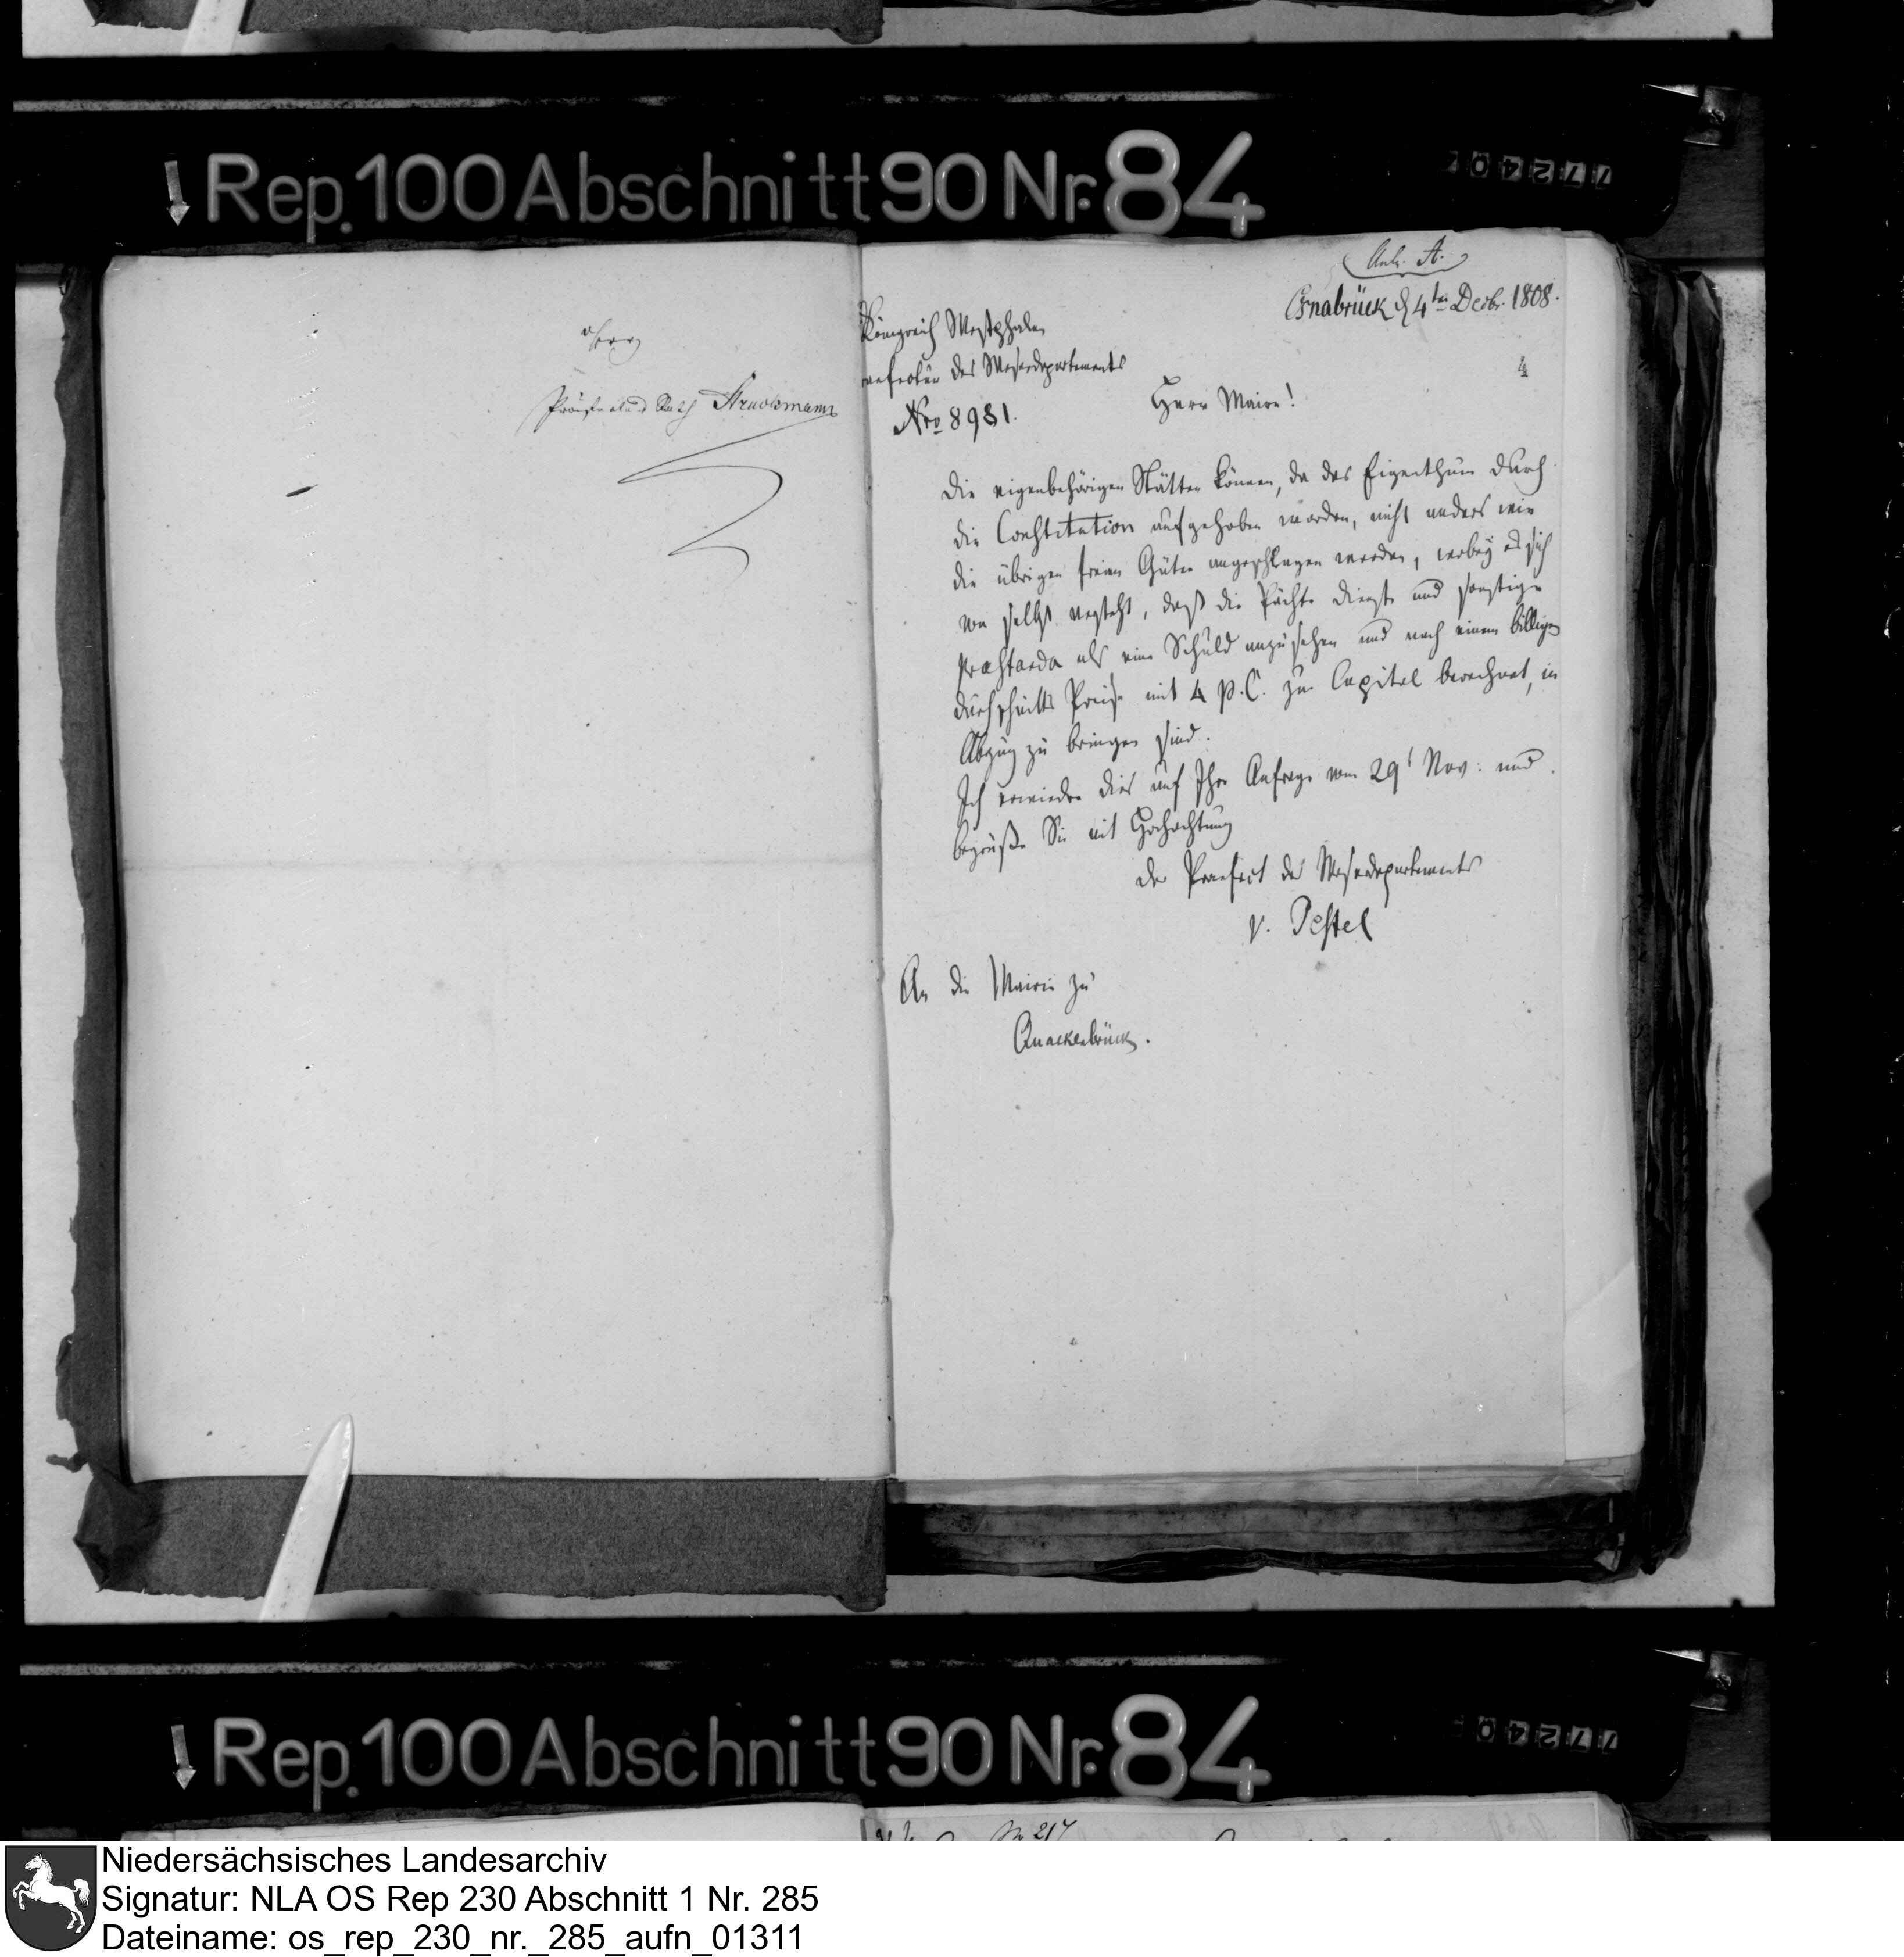 ↓ Rep. 100 Abschnitt 90 Nr. 84
77240
Struckmann
Anl. A.
Osnabrück d 4ten Decbr. 1808.
4
Königreich Westphalen
Praefectur des Weserdepartements
Nro 8981.
Herr Maire!
Die eigenbehörigen Stätten können, da das Eigenthum durch
die Constitution aufgehoben worden, nicht anders wie
die übrigen freien Güter angeschlagen werden, wobey es sich
von selbst versteht, daß die Pächte Dienste und sonstige
Praestanda als eine Schuld anzusehen und nach einem billigen
durchschnitts Preise mit 4 p. C. zu Capital berechnet, in
Abzug zu bringen sind.
Ich erwiedre dies auf Ihre Anfrage vom 29t Nov: und
begrüße Sie mit Hochachtung
der Praefect des Weserdepartements
v. Pestel
An die Mairie zu
Quackenbrück.
↓ Rep. 100 Abschnitt 90 Nr. 84
77240
217
Niedersächsisches Landesarchiv
Signatur: NLA OS Rep 230 Abschnitt 1 Nr. 285
Dateiname: os_rep_230_nr._285_aufn_01311